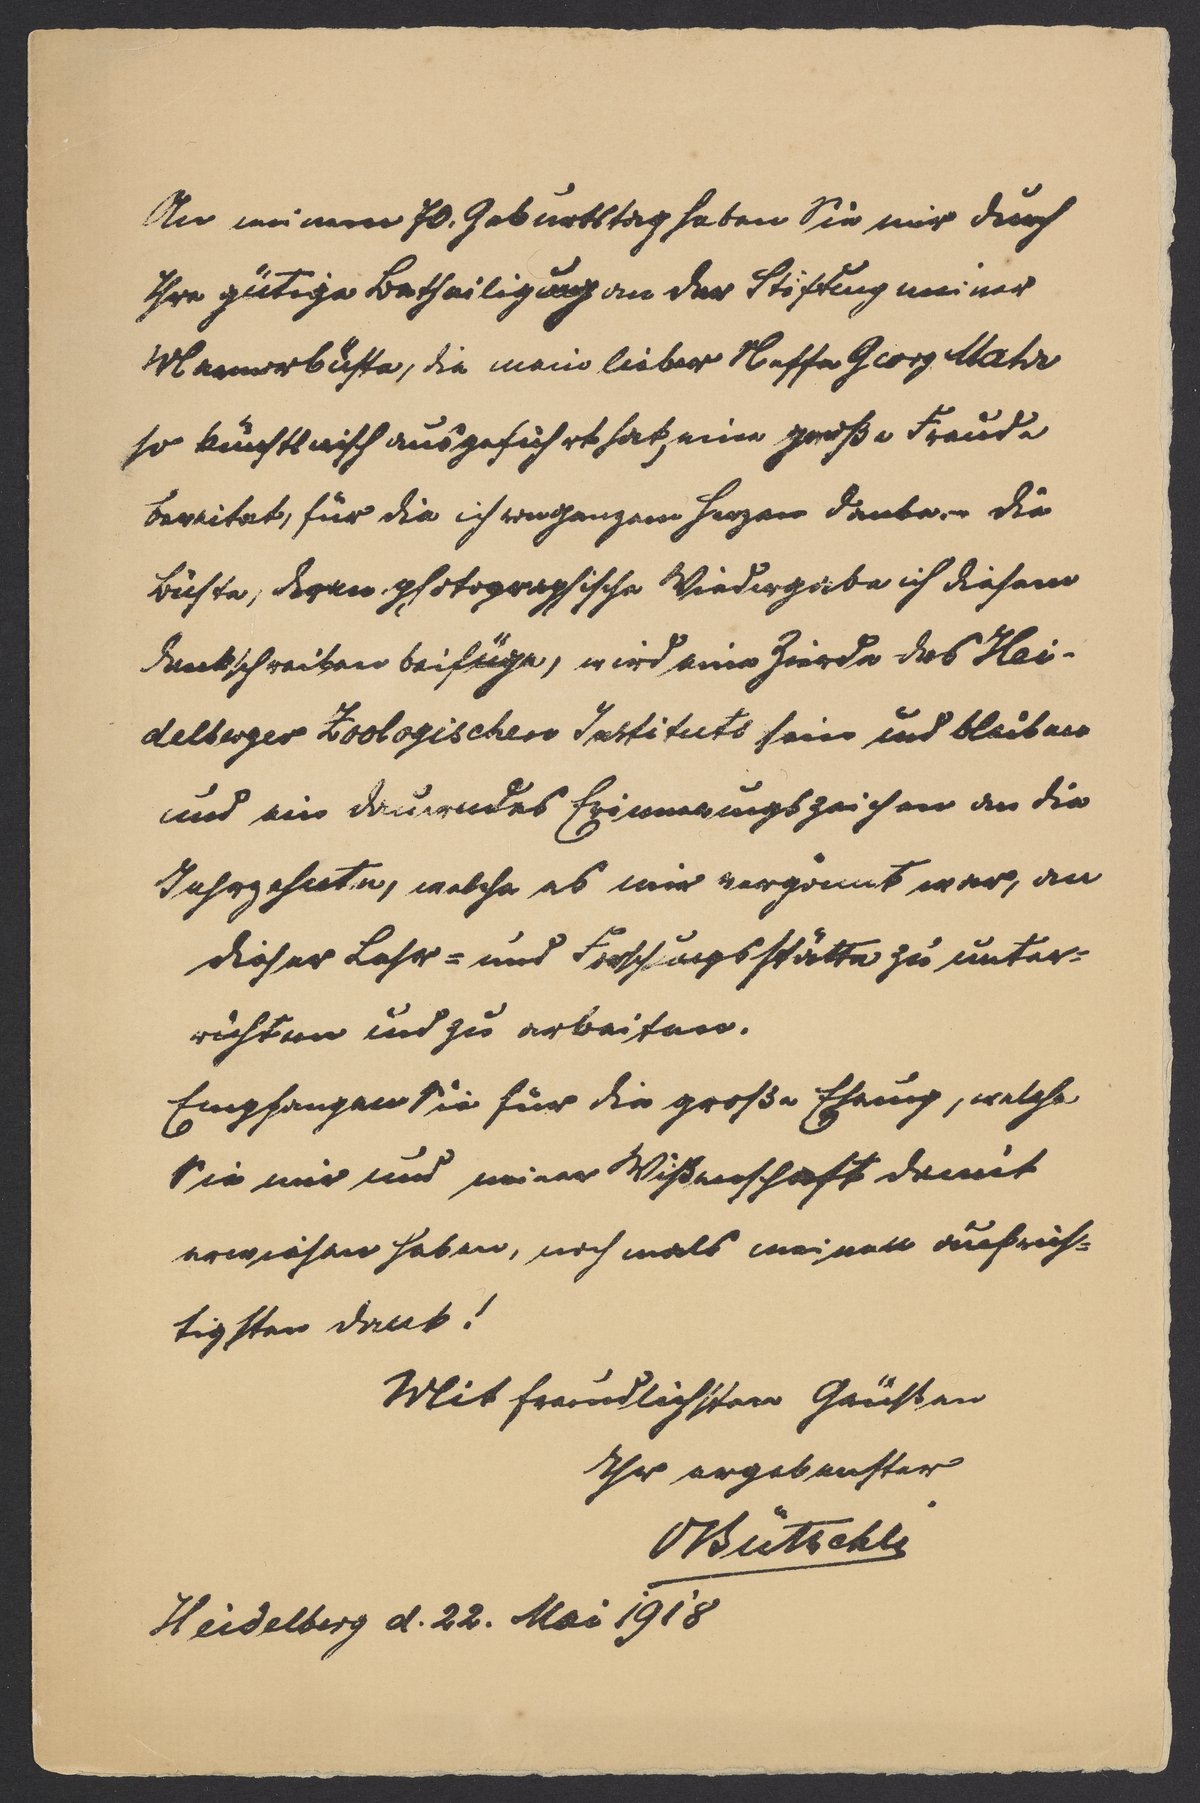 An meinem 70. Geburtstag haben Sie mir durch
Ihre gütige Betheiligung an der Stiftung meiner
Marmorbüste, die mein lieber Neffe Georg
so künstlerisch ausgeführt hat, eine große Freude
bereitet, für die ich von ganzem Herzen danke. – Die
Büste, deren photographische Wiedergabe ich diesem
Dankschreiben beifüge, wird eine Zierde des Hei-
delberger Zoologischen Instituts sein und bleiben
und ein dauerndes Erinnerungszeichen an die
Jahrzehnte, welche es mir vergönnt war, an
dieser Lehr= und Forschungsstätte zu unter=
richten und zu arbeiten.
Empfangen Sie für die große Ehrung, welche
Sie mir und meiner Wißenschaft damit
erwiesen haben, noch mals meinen aufrich=
tigsten Dank!
Mit freundlichsten Grüßen
Ihr ergebenster
O Bütschli
Heidelberg d. 22. Mai 1918